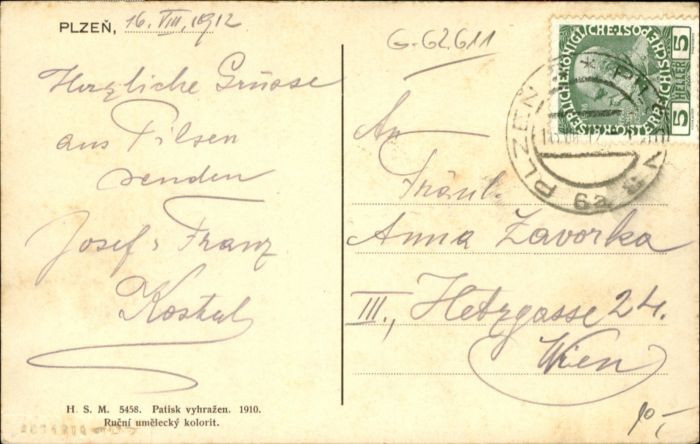 PLZEŇ, 16. VIII. 1912
Herzliche Grüsse
aus Pilsen
senden
Josef & Franz
Kostal
H. S. M. 5458. Patisk vyhražen. 1910.
Ruční umělecký kolorit.
G-62611
5 HELLER 5
KAISERLICHE·KÖNIGLICHE·ÖSTERREICHISCHE·POST
PLZEŇ
6a
An
Fräul.
Anna Zavorka
III., Hetzgasse 24.
Wien
10,-